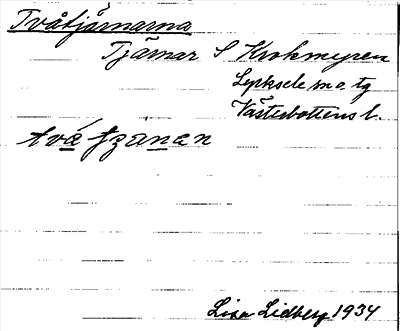 Tvåtjärnarna
Tjärnar S Krokmyren
Lycksele m o. tg
Västerbottens l.
två tjanan
Lisa Lidberg 1934